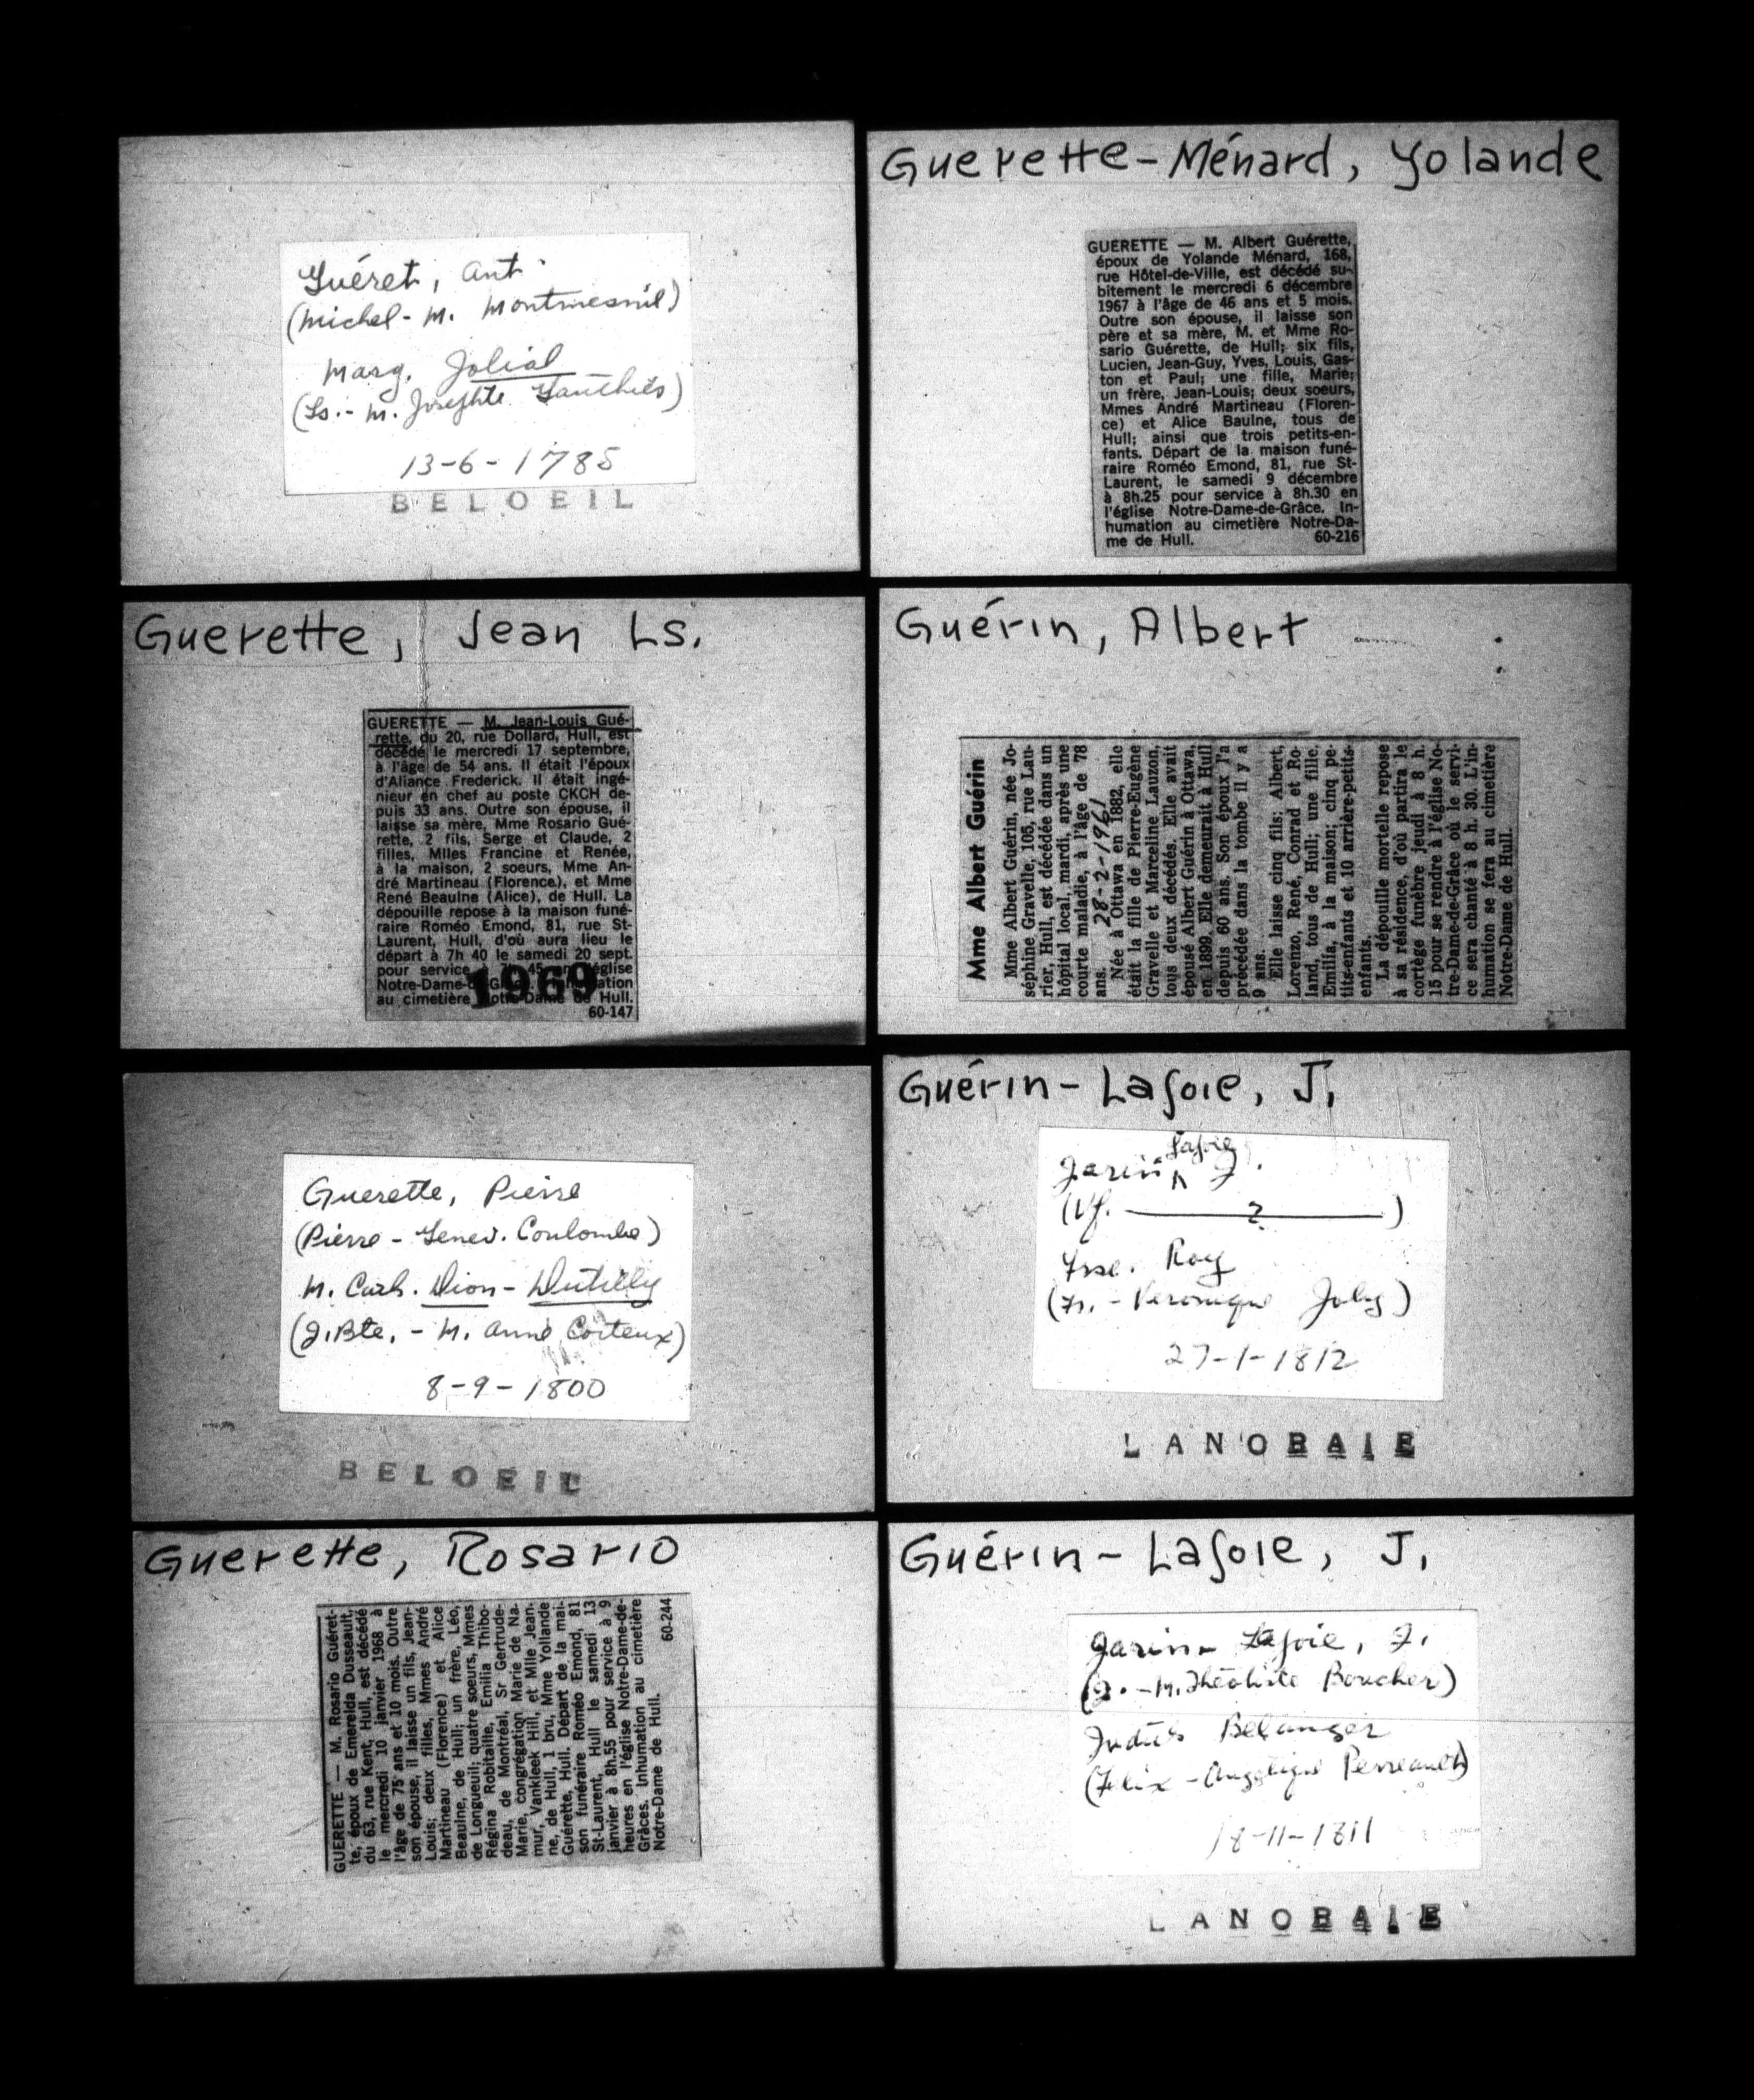 Guéret, Ant.
(Michel - M. Montmesnil)
Marg. Jolial
(Ls. - M. Josephte Gauthier)
13-6-1785
BELOEIL
Guerette, Jean Ls.
GUERETTE — M. Jean-Louis Gué-
rette, du 20, rue Dollard, Hull, est
décédé le mercredi 17 septembre,
à l'âge de 54 ans. Il était l'époux
d'Aliance Frederick. Il était ingé-
nieur en chef au poste CKCH de-
puis 33 ans. Outre son épouse, il
laisse sa mère, Mme Rosario Gué-
rette, 2 fils, Serge et Claude, 2
filles, Mlles Francine et Renée,
à la maison, 2 soeurs, Mme An-
dré Martineau (Florence), et Mme
René Beaulne (Alice), de Hull. La
dépouille repose à la maison funé-
raire Roméo Emond, 81, rue St-
Laurent, Hull, d'où aura lieu le
départ à 7h 40 le samedi 20 sept.
pour service à 7h 45 en l'église
Notre-Dame-de-Grâce. Inhumation
au cimetière Notre-Dame de Hull.
1969
60-147
Guerette, Pierre
(Pierre - Genev. Coulombe)
M. Cath. Dion - Dutilly
(J. Bte. - M. Anne Coiteux)
8-9-1800
BELOEIL
Guerette, Rosario
GUERETTE — M. Rosario Guéret-
te, époux de Emerelda Dusseault,
du 63, rue Kent, Hull, est décédé
le mercredi 10 janvier 1968 à
l'âge de 75 ans et 10 mois. Outre
son épouse, il laisse un fils, Jean-
Louis; deux filles, Mmes André
Martineau (Florence) et Alice
Beaulne, de Hull; un frère, Léo,
de Longueuil; quatre soeurs, Mmes
Régina Robitaille, Emilia Thibo-
deau, de Montréal, Sr Gertrude-
Marie, congrégation Marie de Na-
mur, Vankleek Hill, et Mlle Jean-
ne, de Hull, 1 bru, Mme Yollande
Guérette, Hull. Départ de la mai-
son funéraire Roméo Emond, 81
St-Laurent, Hull le samedi 13
janvier à 8h.55 pour service à 9
heures en l'église Notre-Dame-de-
Grâces. Inhumation au cimetière
Notre-Dame de Hull.
60-244
Guerette-Ménard, Yolande
GUERETTE — M. Albert Guérette,
époux de Yolande Ménard, 168,
rue Hôtel-de-Ville, est décédé su-
bitement le mercredi 6 décembre
1967 à l'âge de 46 ans et 5 mois.
Outre son épouse, il laisse son
père et sa mère, M. et Mme Ro-
sario Guérette, de Hull; six fils,
Lucien, Jean-Guy, Yves, Louis, Gas-
ton et Paul; une fille, Marie;
un frère, Jean-Louis; deux soeurs,
Mmes André Martineau (Floren-
ce) et Alice Baulne, tous de
Hull; ainsi que trois petits-en-
fants. Départ de la maison funé-
raire Roméo Emond, 81, rue St-
Laurent, le samedi 9 décembre
à 8h.25 pour service à 8h.30 en
l'église Notre-Dame-de-Grâce. In-
humation au cimetière Notre-Da-
me de Hull. 60-216
Guérin, Albert
Mme Albert Guérin
Mme Albert Guérin, née Jo-
séphine Gravelle, 105, rue Lau-
rier, Hull, est décédée dans un
hôpital local, mardi, après une
courte maladie, à l'âge de 78
ans. 28-2-1961
Née à Ottawa en 1882, elle
était la fille de Pierre-Eugène
Gravelle et Marceline Lauzon,
tous deux décédés. Elle avait
épousé Albert Guérin à Ottawa,
en 1899. Elle demeurait à Hull
depuis 60 ans. Son époux l'a
précédée dans la tombe il y a
9 ans.
Elle laisse cinq fils: Albert,
Lorenzo, René, Conrad et Ro-
land, tous de Hull; une fille,
Emilia, à la maison; cinq pe-
tits-enfants et 10 arrière-petits-
enfants.
La dépouille mortelle repose
à sa résidence, d'où partira le
cortège funèbre jeudi à 8 h.
15 pour se rendre à l'église No-
tre-Dame-de-Grâce où le servi-
ce sera chanté à 8 h. 30. L'in-
humation se fera au cimetière
Notre-Dame de Hull.
Guérin-Lafoie, J.
Garin Lafoie J.
(Vf. ? )
Fse. Roy
(Fs. - Veronique Joly)
27-1-1812
LANORAIE
Guérin-Lafoie, J.
Garin-Lafoie, J.
(J. - M. Théotiste Boucher)
Judith Belanger
(Felix - Angelique Perreault)
18-11-1811
LANORAIE